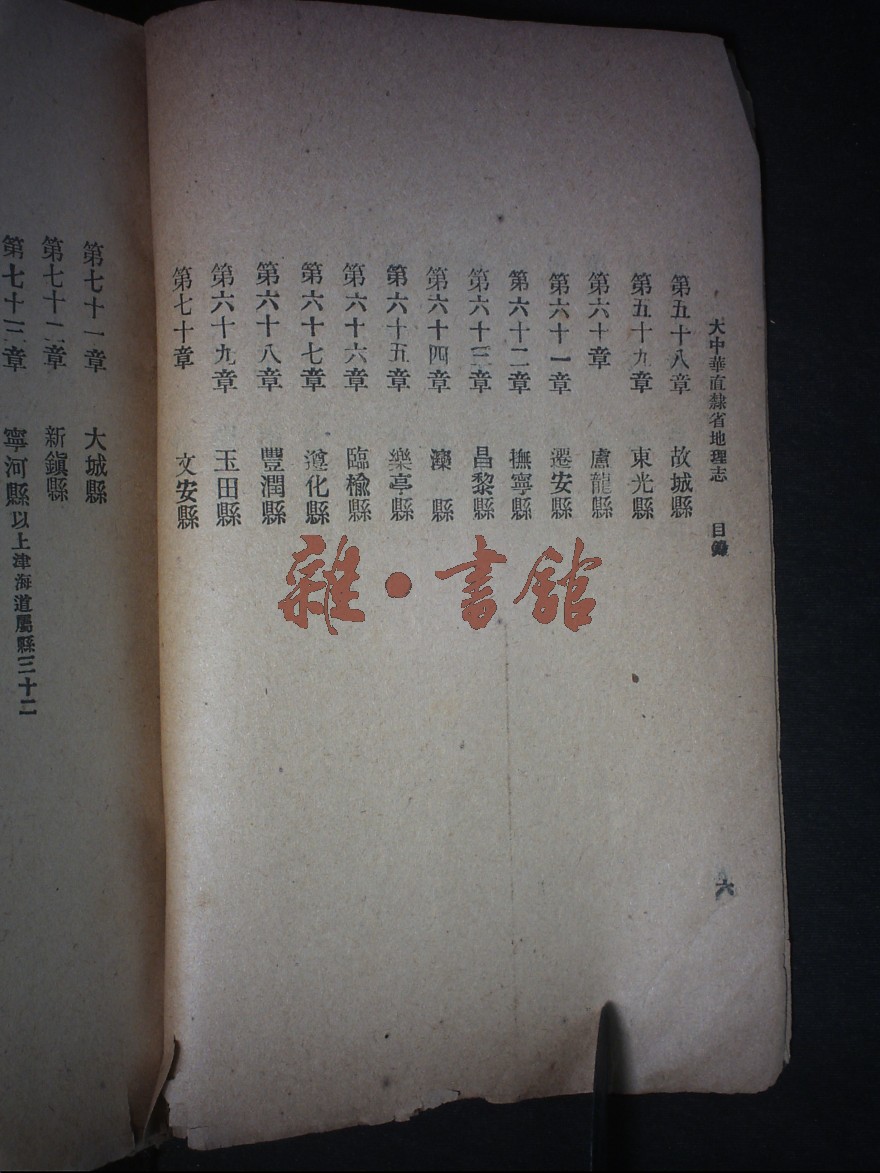 大中華直隸省地理志　目錄
六
第五十八章　故城縣
第五十九章　東光縣
第六十章　盧龍縣
第六十一章　遷安縣
第六十二章　撫寧縣
第六十三章　昌黎縣
第六十四章　灤縣
第六十五章　樂亭縣
第六十六章　臨榆縣
第六十七章　遵化縣
第六十八章　豐潤縣
第六十九章　玉田縣
第七十章　文安縣
第七十一章　大城縣
第七十二章　新鎮縣
第七十三章　寧河縣以上津海道屬縣三十二
雜・書館